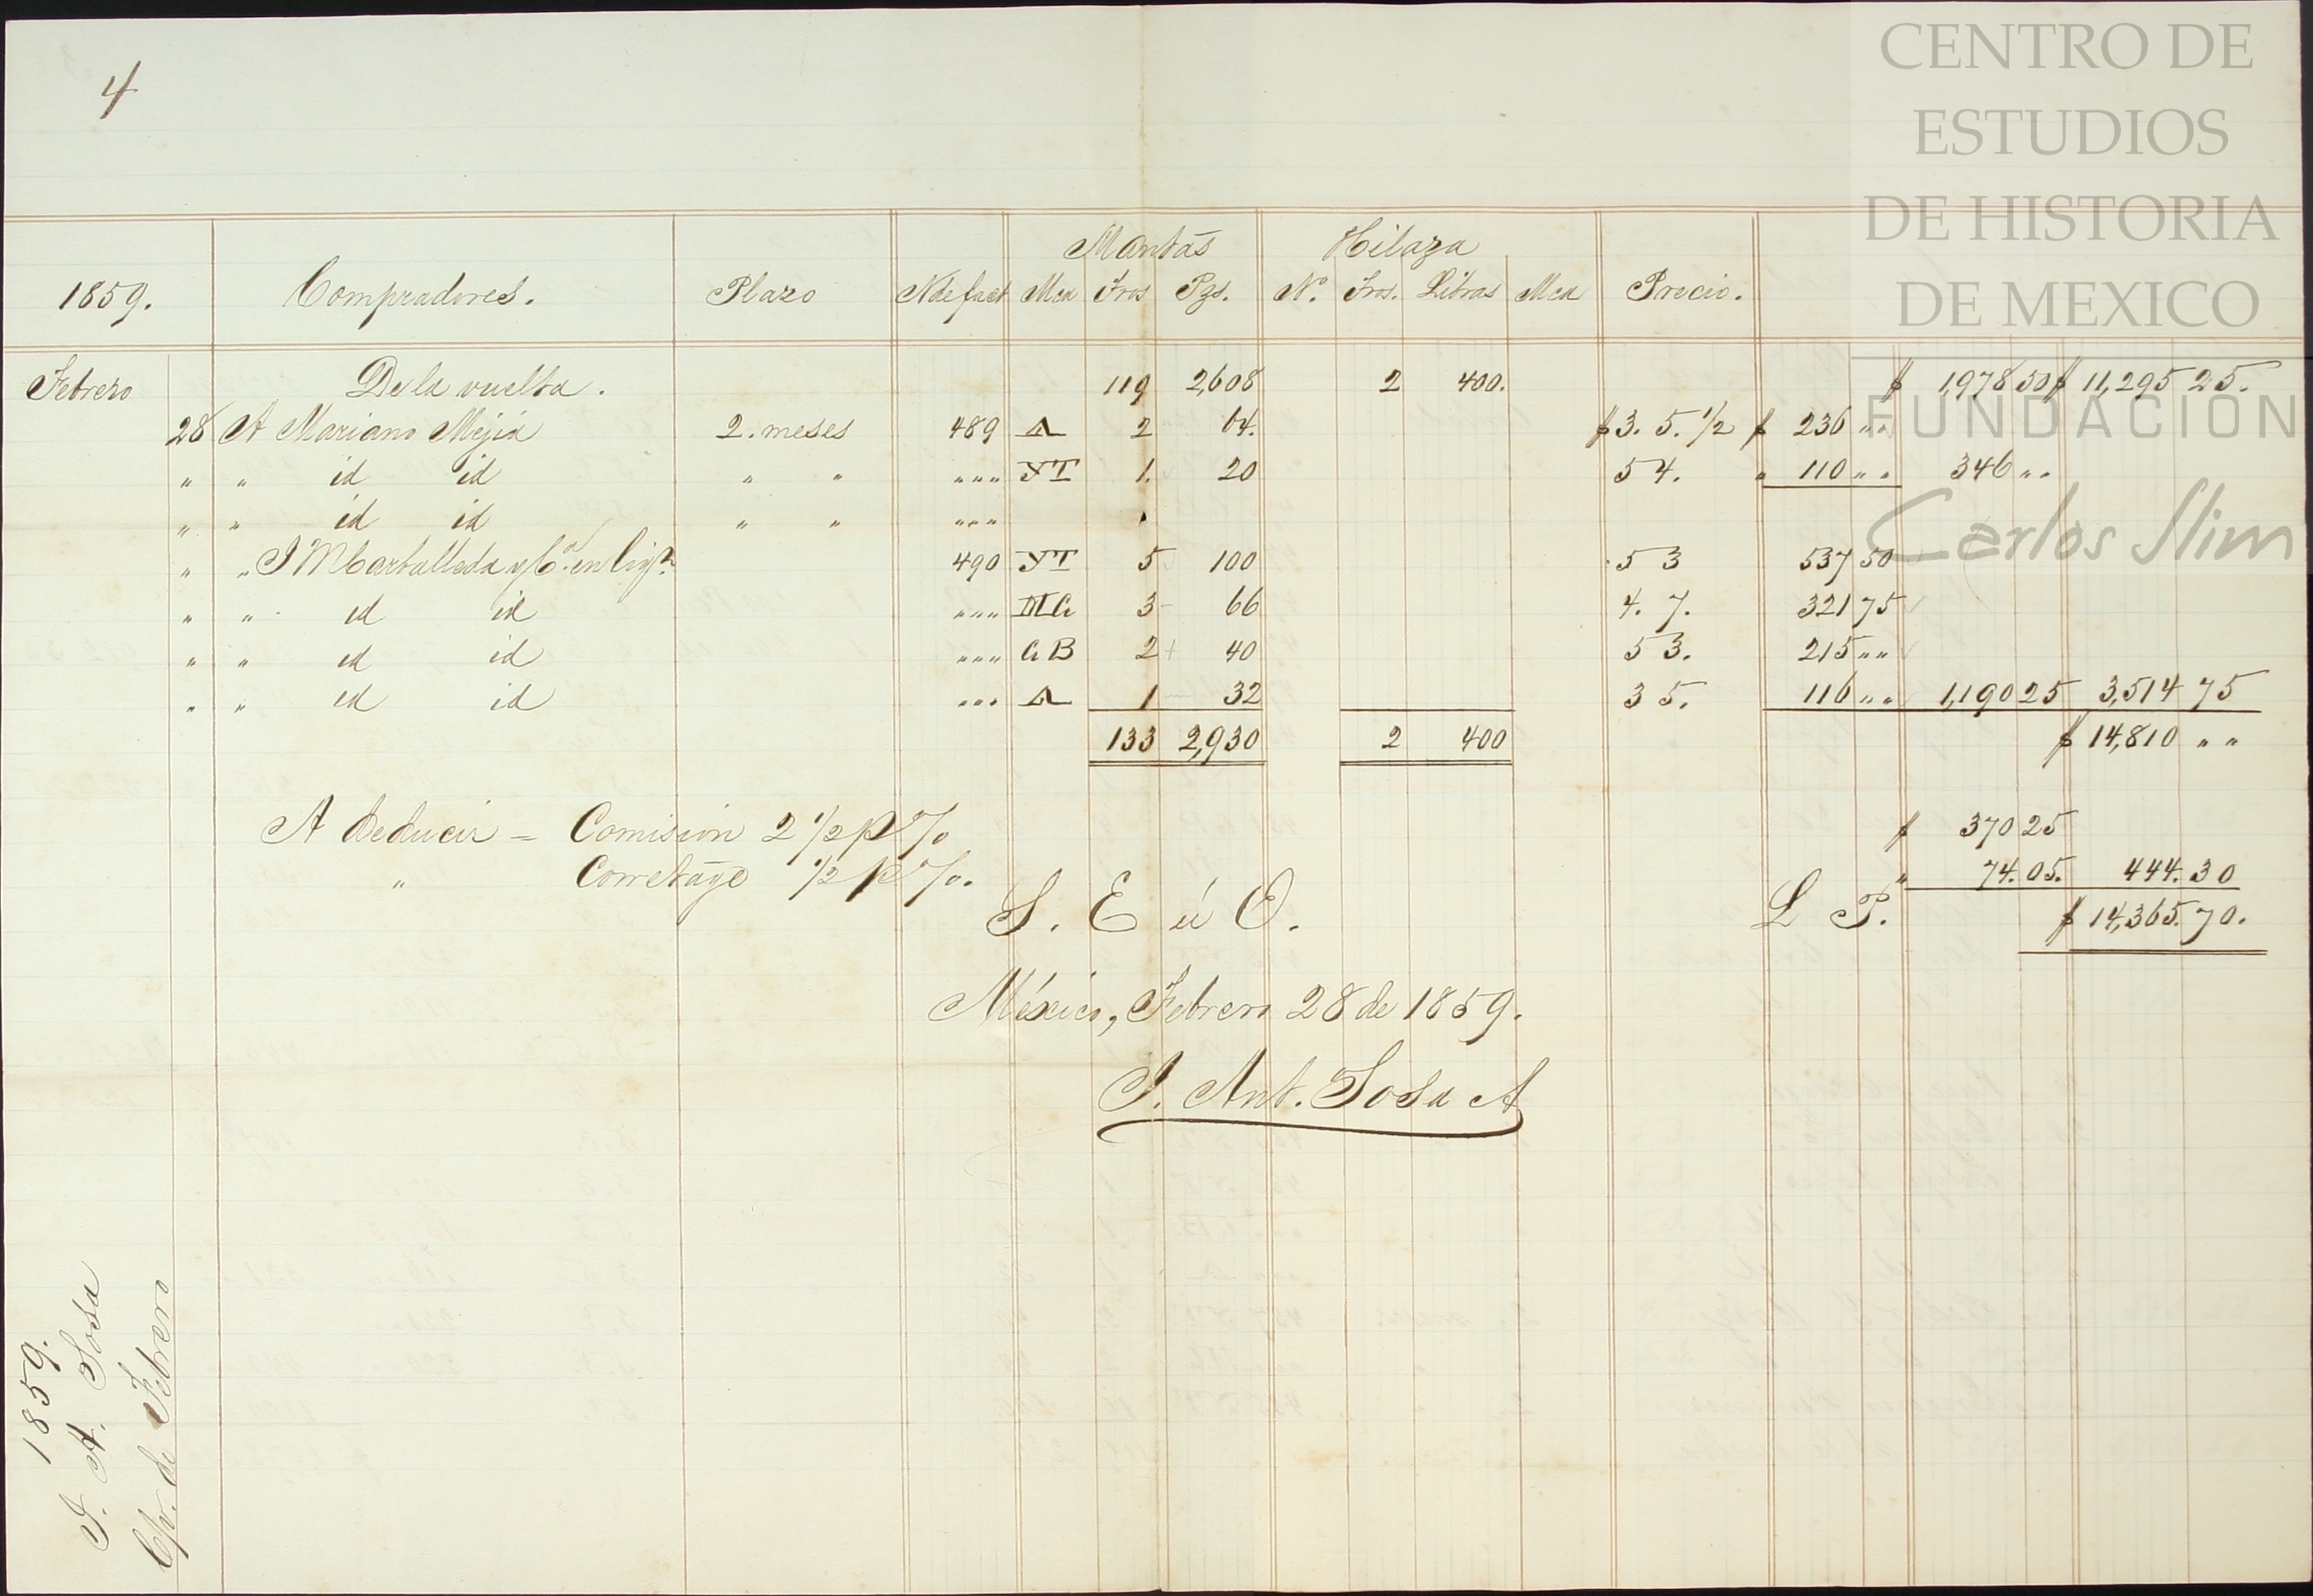 4
CENTRO DE
ESTUDIOS
DE HISTORIA
DE MEXICO
FUNDACION
Carlos Slim
Mantas Hilaza
1859. Compradores. Plazo N de fact Mca Fros Pzs. N. Fros. Libras Mca Precio.
Febrero De la vuelta. 119 2,608 2 400. $ 1,978 50 $ 11,295 25.
28 A Mariano Mejia 2. meses 489 2 64. $3. 5. 1/2 $ 236 " "
" " id id " " " " " YT 1. 20 5 4. " 110 " " 346 " "
" " id id " " " " "
" " J M Carballeda y Ca. en liqn. 490 YT 5 100 5 3 537 50
" " id id " " " MG 3 66 4. 7. 321 75
" " id id " " " GB 2 40 5 3. 215 " "
" " id id " " " 1 32 3 5. 116 " " 1,190 25 3,514 75
133 2,930 2 400 $ 14,810 " "
A deducir = Comision 2 1/2 p% $ 370 25
" Corretage 1/2 p%. " 74. 05. 444. 30
S. E ú O. L P. $ 14,365. 70.
México, Febrero 28 de 1859.
J. Ant. Sosa A
1859.
J. A. Sosa
C/v. de Febrero